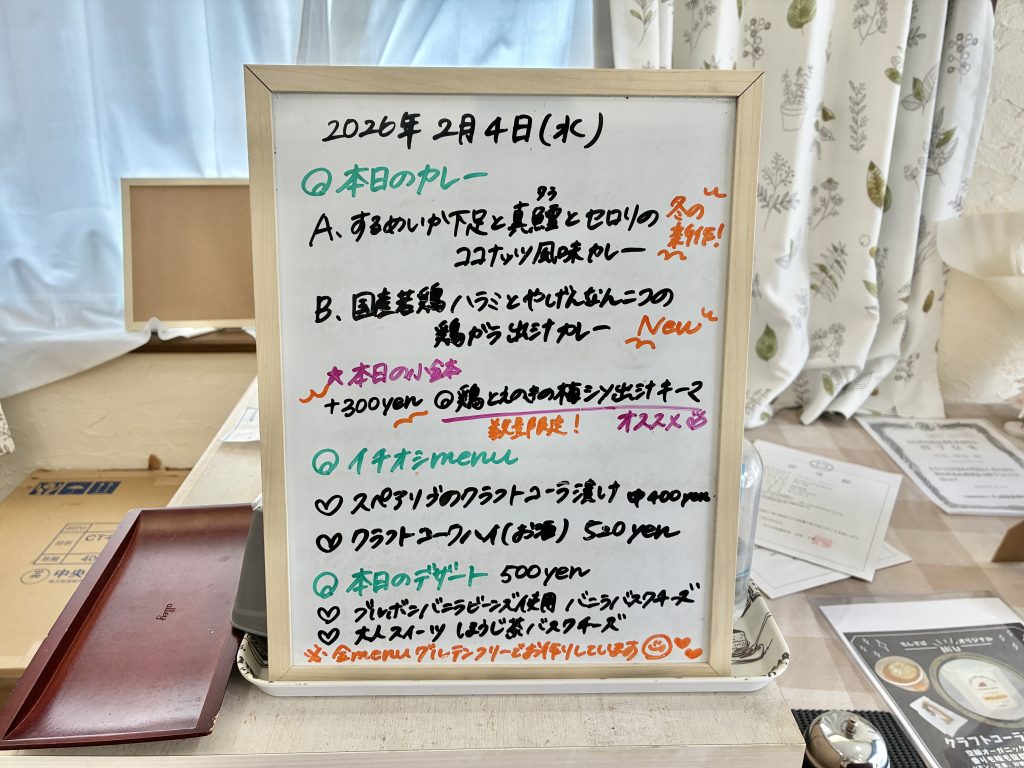 2026年 2月4日(水)
本日のカレー
A、するめいか下足と真鱈とセロリの
タラ
ココナッツ風味カレー
冬の
新作!
B、国産若鶏ハラミとやげんなんこつの
鶏がら出汁カレー
New
★本日の小鉢
+300yen
鶏とえのきの梅シソ出汁チーマ
数量限定!
オススメ
イチオシmenu
スペアリブのクラフトコーラ漬け 中400yen
クラフトコークハイ(お酒) 520yen
本日のデザート 500yen
ブルボンバニラビーンズ使用 バニラバスクチーズ
大人スイーツ ほうじ茶バスクチーズ
※全menuグルテンフリーでお作りしています
alley
クラフトコーラ